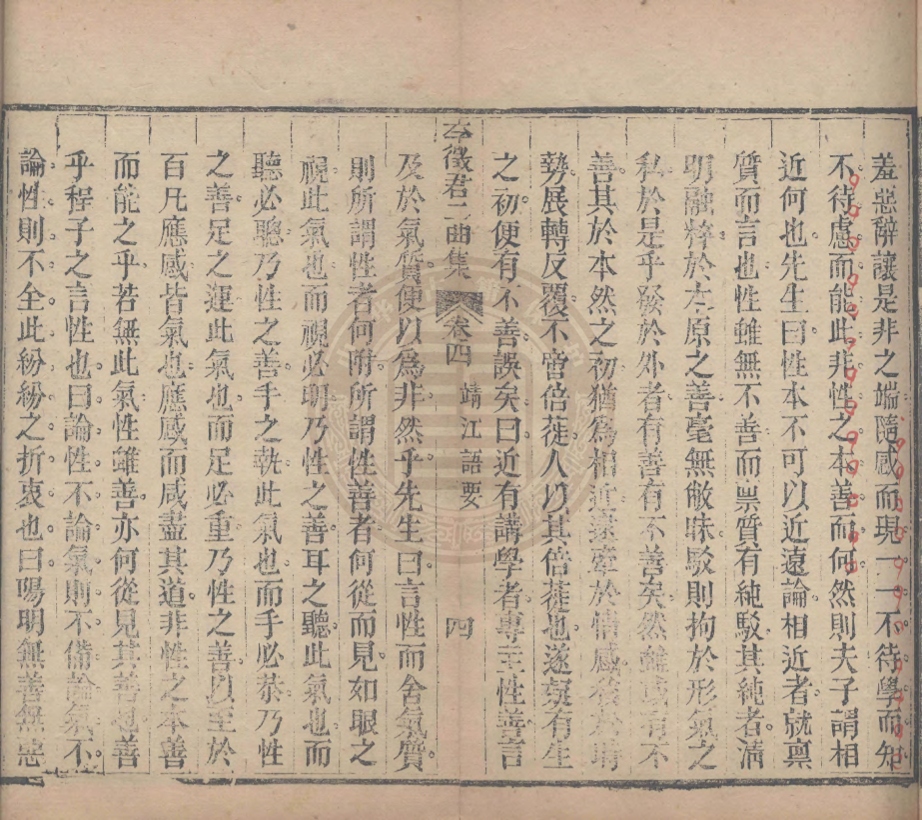 羞惡辭讓是非之端隨感而現一一不待學而知
不待慮而能此非性之本善而何然則夫子謂相
近何也先生曰性本不可以近遠論相近者就稟
質而言也性雖無不善而稟質有純駁其純者淸
明融粹於本原之善毫無蔽昧駁則拘於形氣之
私於是乎發於外者有善有不善矣然雖或有不
善其於本然之初猶爲相近逮牽於情感移於時
勢展轉反覆不啻倍蓰人以其倍蓰也遂疑有生
之初便有不善誤矣曰近有講學者專主性善言
李徵君二曲集 卷四 靖江語要 四
及於氣質便以爲非然乎先生曰言性而舍氣質
則所謂性者何附所謂性善者何從而見如眼之
視此氣也而視必明乃性之善耳之聽此氣也而
聽必聰乃性之善手之執此氣也而手必恭乃性
之善足之運此氣也而足必重乃性之善以至於
百凡應感皆氣也應感而咸盡其道非性之本善
而能之乎若無此氣性雖善亦何從見其善也善
乎程子之言性也曰論性不論氣則不備論氣不
論性則不全此紛紛之折衷也曰陽明無善無惡